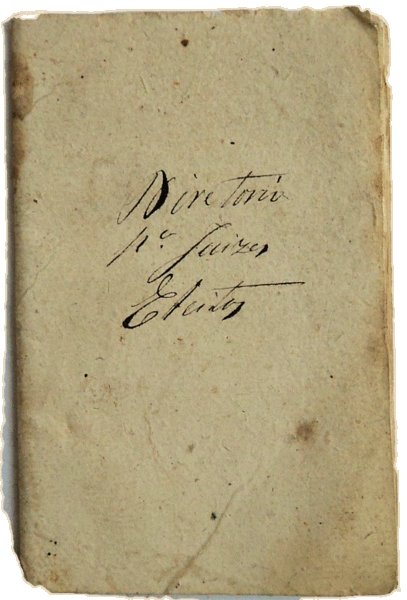 Diretorio
p.ª Juizes
Eleitos